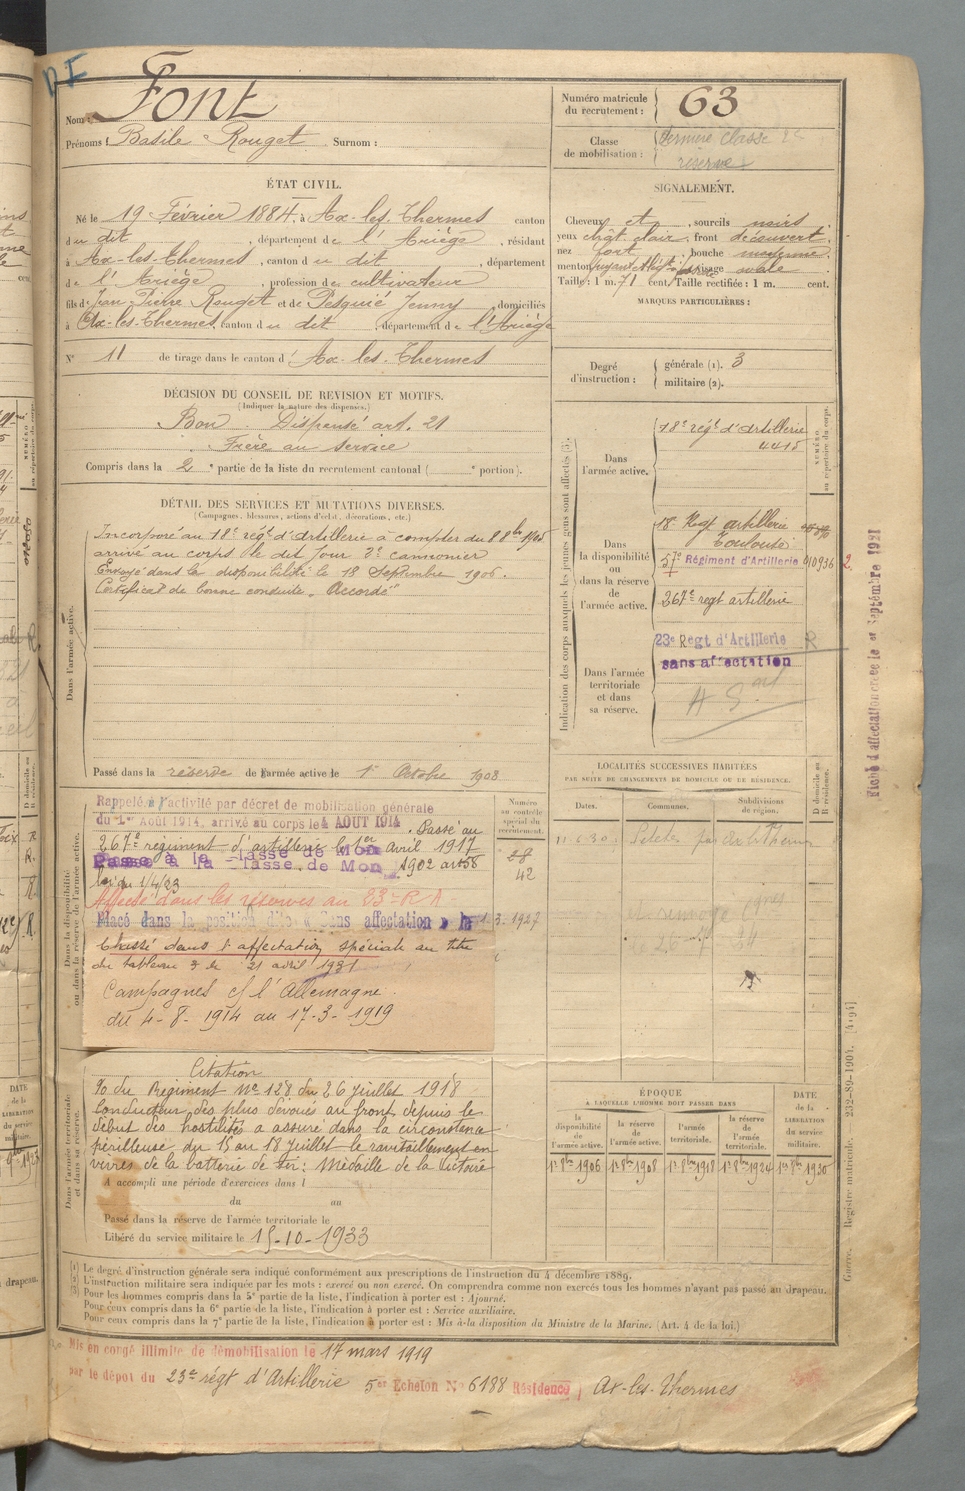 Nom : Font
Prénoms : Basile Rouget Surnom :
Numéro matricule du recrutement : 63
Classe de mobilisation : Dernière classe
réserve
ÉTAT CIVIL.
Né le 19 Février 1884, à Ax-les-Thermes canton
du dit, département de l'Ariège, résidant
à Ax-les-Thermes, canton du dit, département
de l'Ariège, profession de cultivateur
fils de Jean Pierre Rouget et de Pesquié Jenny, domiciliés
à Ax-les-Thermes, canton du dit, département de l'Ariège
N° 11 de tirage dans le canton d'Ax-les-Thermes
SIGNALEMENT.
Cheveux et, sourcils noirs
yeux chât. clair, front découvert,
nez fort, bouche moyenne,
menton visage ovale
Taille : 1 m. 71 cent. Taille rectifiée : 1 m. cent.
MARQUES PARTICULIÈRES :
Degré d'instruction : générale (1). 3
militaire (2).
DÉCISION DU CONSEIL DE REVISION ET MOTIFS.
(Indiquer la nature des dispenses.)
Bon. Dispensé art. 21
Frère au service
Compris dans la 2e partie de la liste du recrutement cantonal ( e portion).
DÉTAIL DES SERVICES ET MUTATIONS DIVERSES.
(Campagnes, blessures, actions d'éclat, décorations, etc.)
Dans l'armée active.
Incorporé au 18e régt d'Artillerie à compter du 8 8bre 1905
arrivé au corps le dit jour 2e cannonier
Envoyé dans la disponibilité le 18 Septembre 1906.
Certificat de bonne conduite "Accordé"
Passé dans la réserve de l'armée active le 1er Octobre 1908
Indication des corps auxquels les jeunes gens sont affectés (3).
NUMÉRO au répertoire du corps.
Dans l'armée active.
18e régt d'Artillerie
4415
Dans la disponibilité ou dans la réserve de l'armée active.
18e Regt artillerie
Toulouse
57e Régiment d'Artillerie 010936 2.
267e regt artillerie
Dans l'armée territoriale et dans sa réserve.
23e Regt d'Artillerie R
sans affectation
Fiche d'affectation créée le 1er Septembre 1921
LOCALITÉS SUCCESSIVES HABITÉES
PAR SUITE DE CHANGEMENTS DE DOMICILE OU DE RÉSIDENCE.
Dates. Communes. Subdivisions de région. D domicile ou R résidence.
11.6.30
Dans la disponibilité ou dans la réserve de l'armée active.
Numéro au contrôle spécial du recrutement.
28
42
Rappelé à l'activité par décret de mobilisation générale
du 1er Août 1914, arrivé au corps le 4 AOUT 1914. Passé au
267e régiment d'artillerie le 1er avril 1917
Passé à la Classe de Mon 1902 art 58
loi du 1/4/23
Affecté dans les réserves au 23e R A
Placé dans la position dite « Sans affectation » le 1.3.1927
Classé dans l'affectation spéciale au titre
du tableau 3 le 21 avril 1931
Campagnes c/ l'Allemagne.
du 4-8-1914 au 17-3-1919
Dans l'armée territoriale et dans sa réserve.
Citation
% du Régiment N° 128 du 26 juillet 1918
Conducteur des plus dévoués au front depuis le
début des hostilités a assuré dans la circonstance
périlleuse du 15 au 18 juillet le ravitaillement en
vivres de la batterie de tir : Médaille de la Victoire
A accompli une période d'exercices dans l
du au
Passé dans la réserve de l'armée territoriale le
Libéré du service militaire le 15-10-1933
ÉPOQUE
A LAQUELLE L'HOMME DOIT PASSER DANS
la disponibilité de l'armée active. la réserve de l'armée active. l'armée territoriale. la réserve de l'armée territoriale. DATE de la LIBÉRATION du service militaire.
1er 8bre 1906 1er 8bre 1908 1er 8bre 1918 1er 8bre 1924 1er 8bre 1930
(1) Le degré d'instruction générale sera indiqué conformément aux prescriptions de l'instruction du 4 décembre 1889.
(2) L'instruction militaire sera indiquée par les mots : exercé ou non exercé. On comprendra comme non exercés tous les hommes n'ayant pas passé au drapeau.
(3) Pour les hommes compris dans la 5e partie de la liste, l'indication à porter est : Ajourné.
Pour ceux compris dans la 6e partie de la liste, l'indication à porter est : Service auxiliaire.
Pour ceux compris dans la 7e partie de la liste, l'indication à porter est : Mis à la disposition du Ministre de la Marine. (Art. 4 de la loi.)
Guerre. Registre matricule. 232-89-1904. [4194]
Mis en congé illimité de démobilisation le 17 mars 1919
par le dépôt du 23e régt d'Artillerie 5e Echelon N° 6188 Résidence Ax-les-Thermes